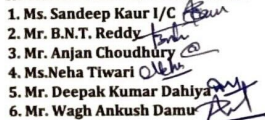 1. Ms. Sandeep Kaur I/C
2. Mr. B.N.T. Reddy
3. Mr. Anjan Choudhury
4. Ms.Neha Tiwari
5. Mr. Deepak Kumar Dahiya
6. Mr. Wagh Ankush Damu